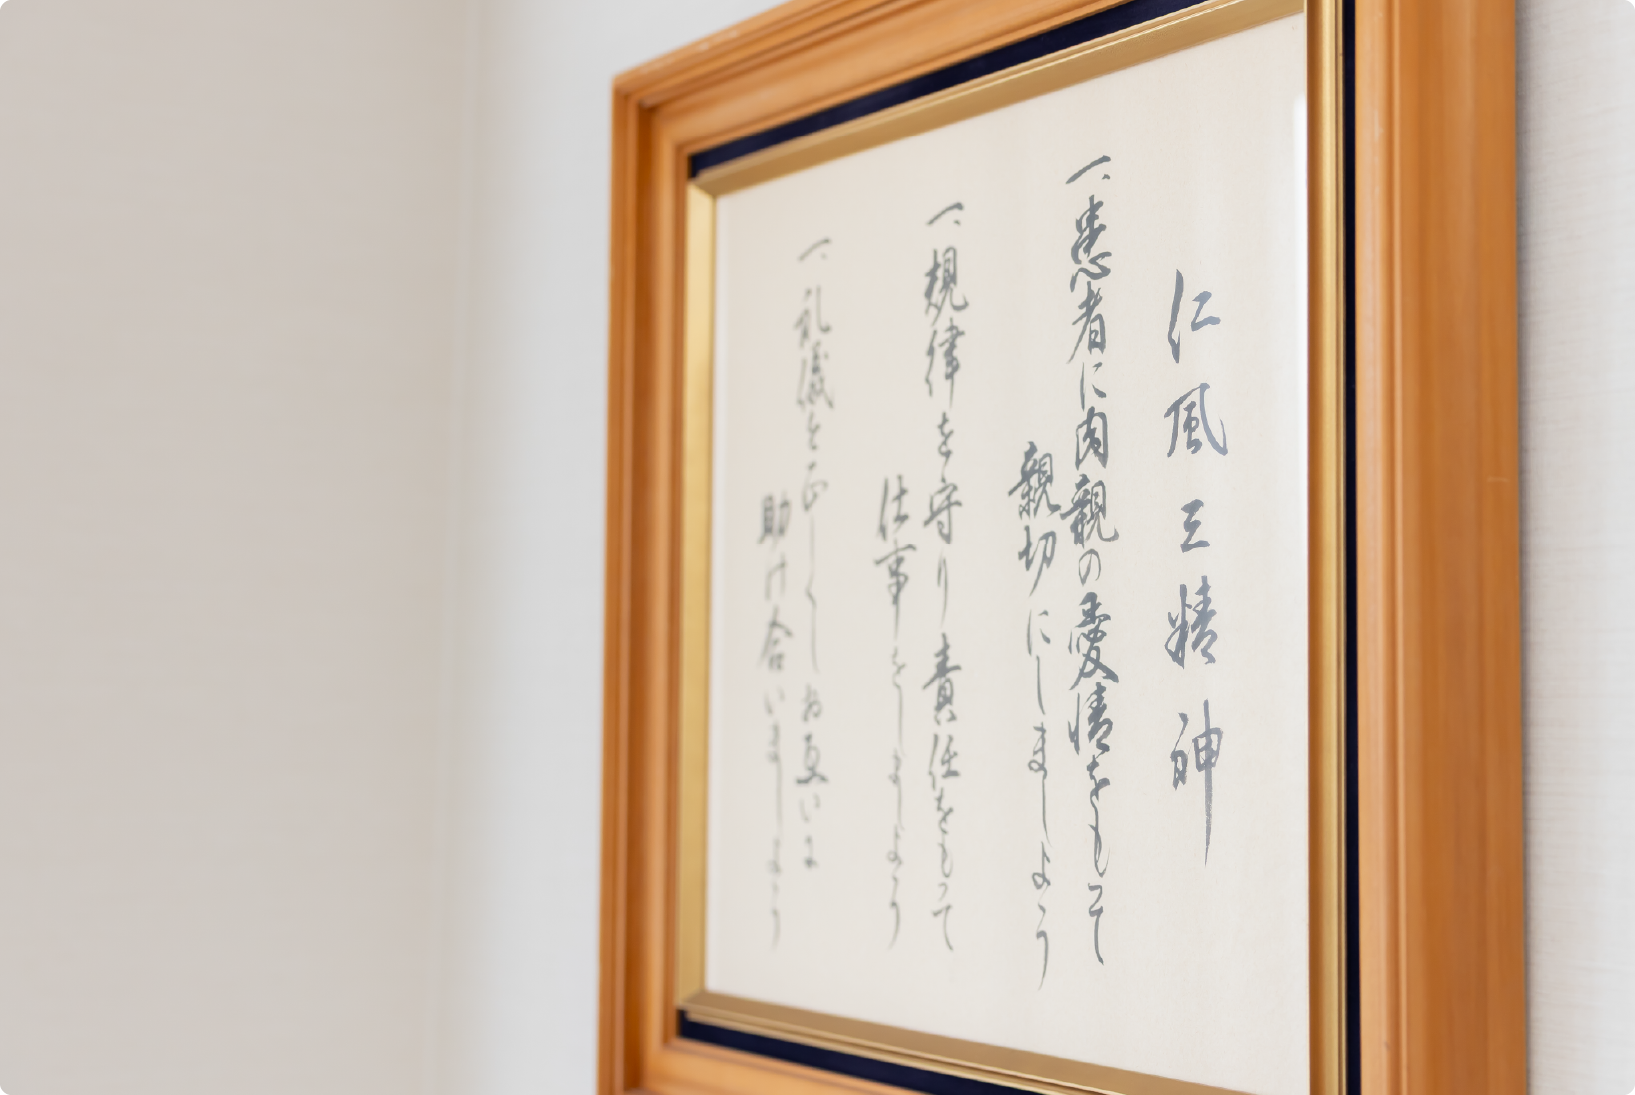 仁風三精神
一、患者に肉親の愛情をもって
親切にしましょう
一、規律を守り責任をもって
仕事をしましょう
一、礼儀を正しくしお互いに
助け合いましょう